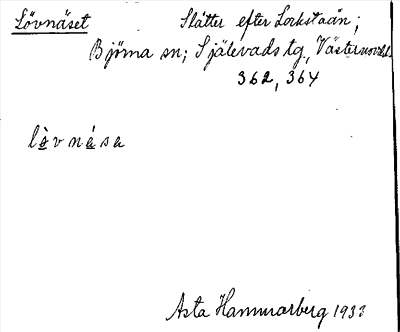 Lövnäset Slåtter efter Lockstaån;
Björna sn; Själevads tg., Västernorrl.
362, 364
lòv nésa
Asta Hammarberg 1933